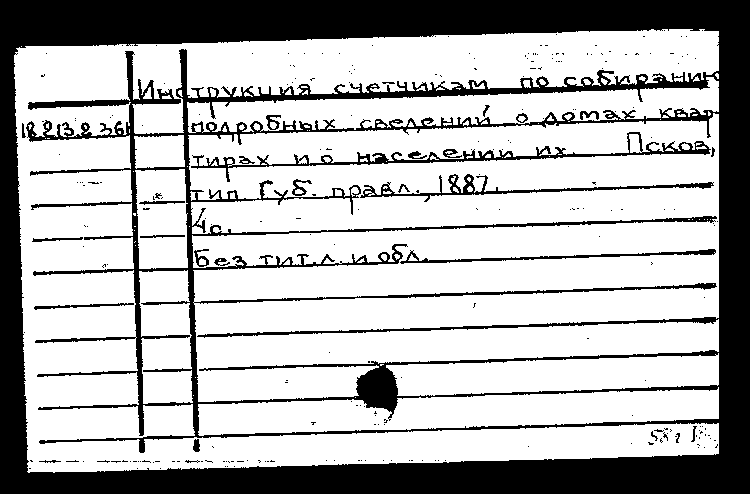 Инструкция счетчикам по собиранию
18.213.2.361 подробных сведений о домах, квар-
тирах и о населении их. Псков,
тип. Губ. правл., 1887.
4с.
Без тит.л. и обл.
58г